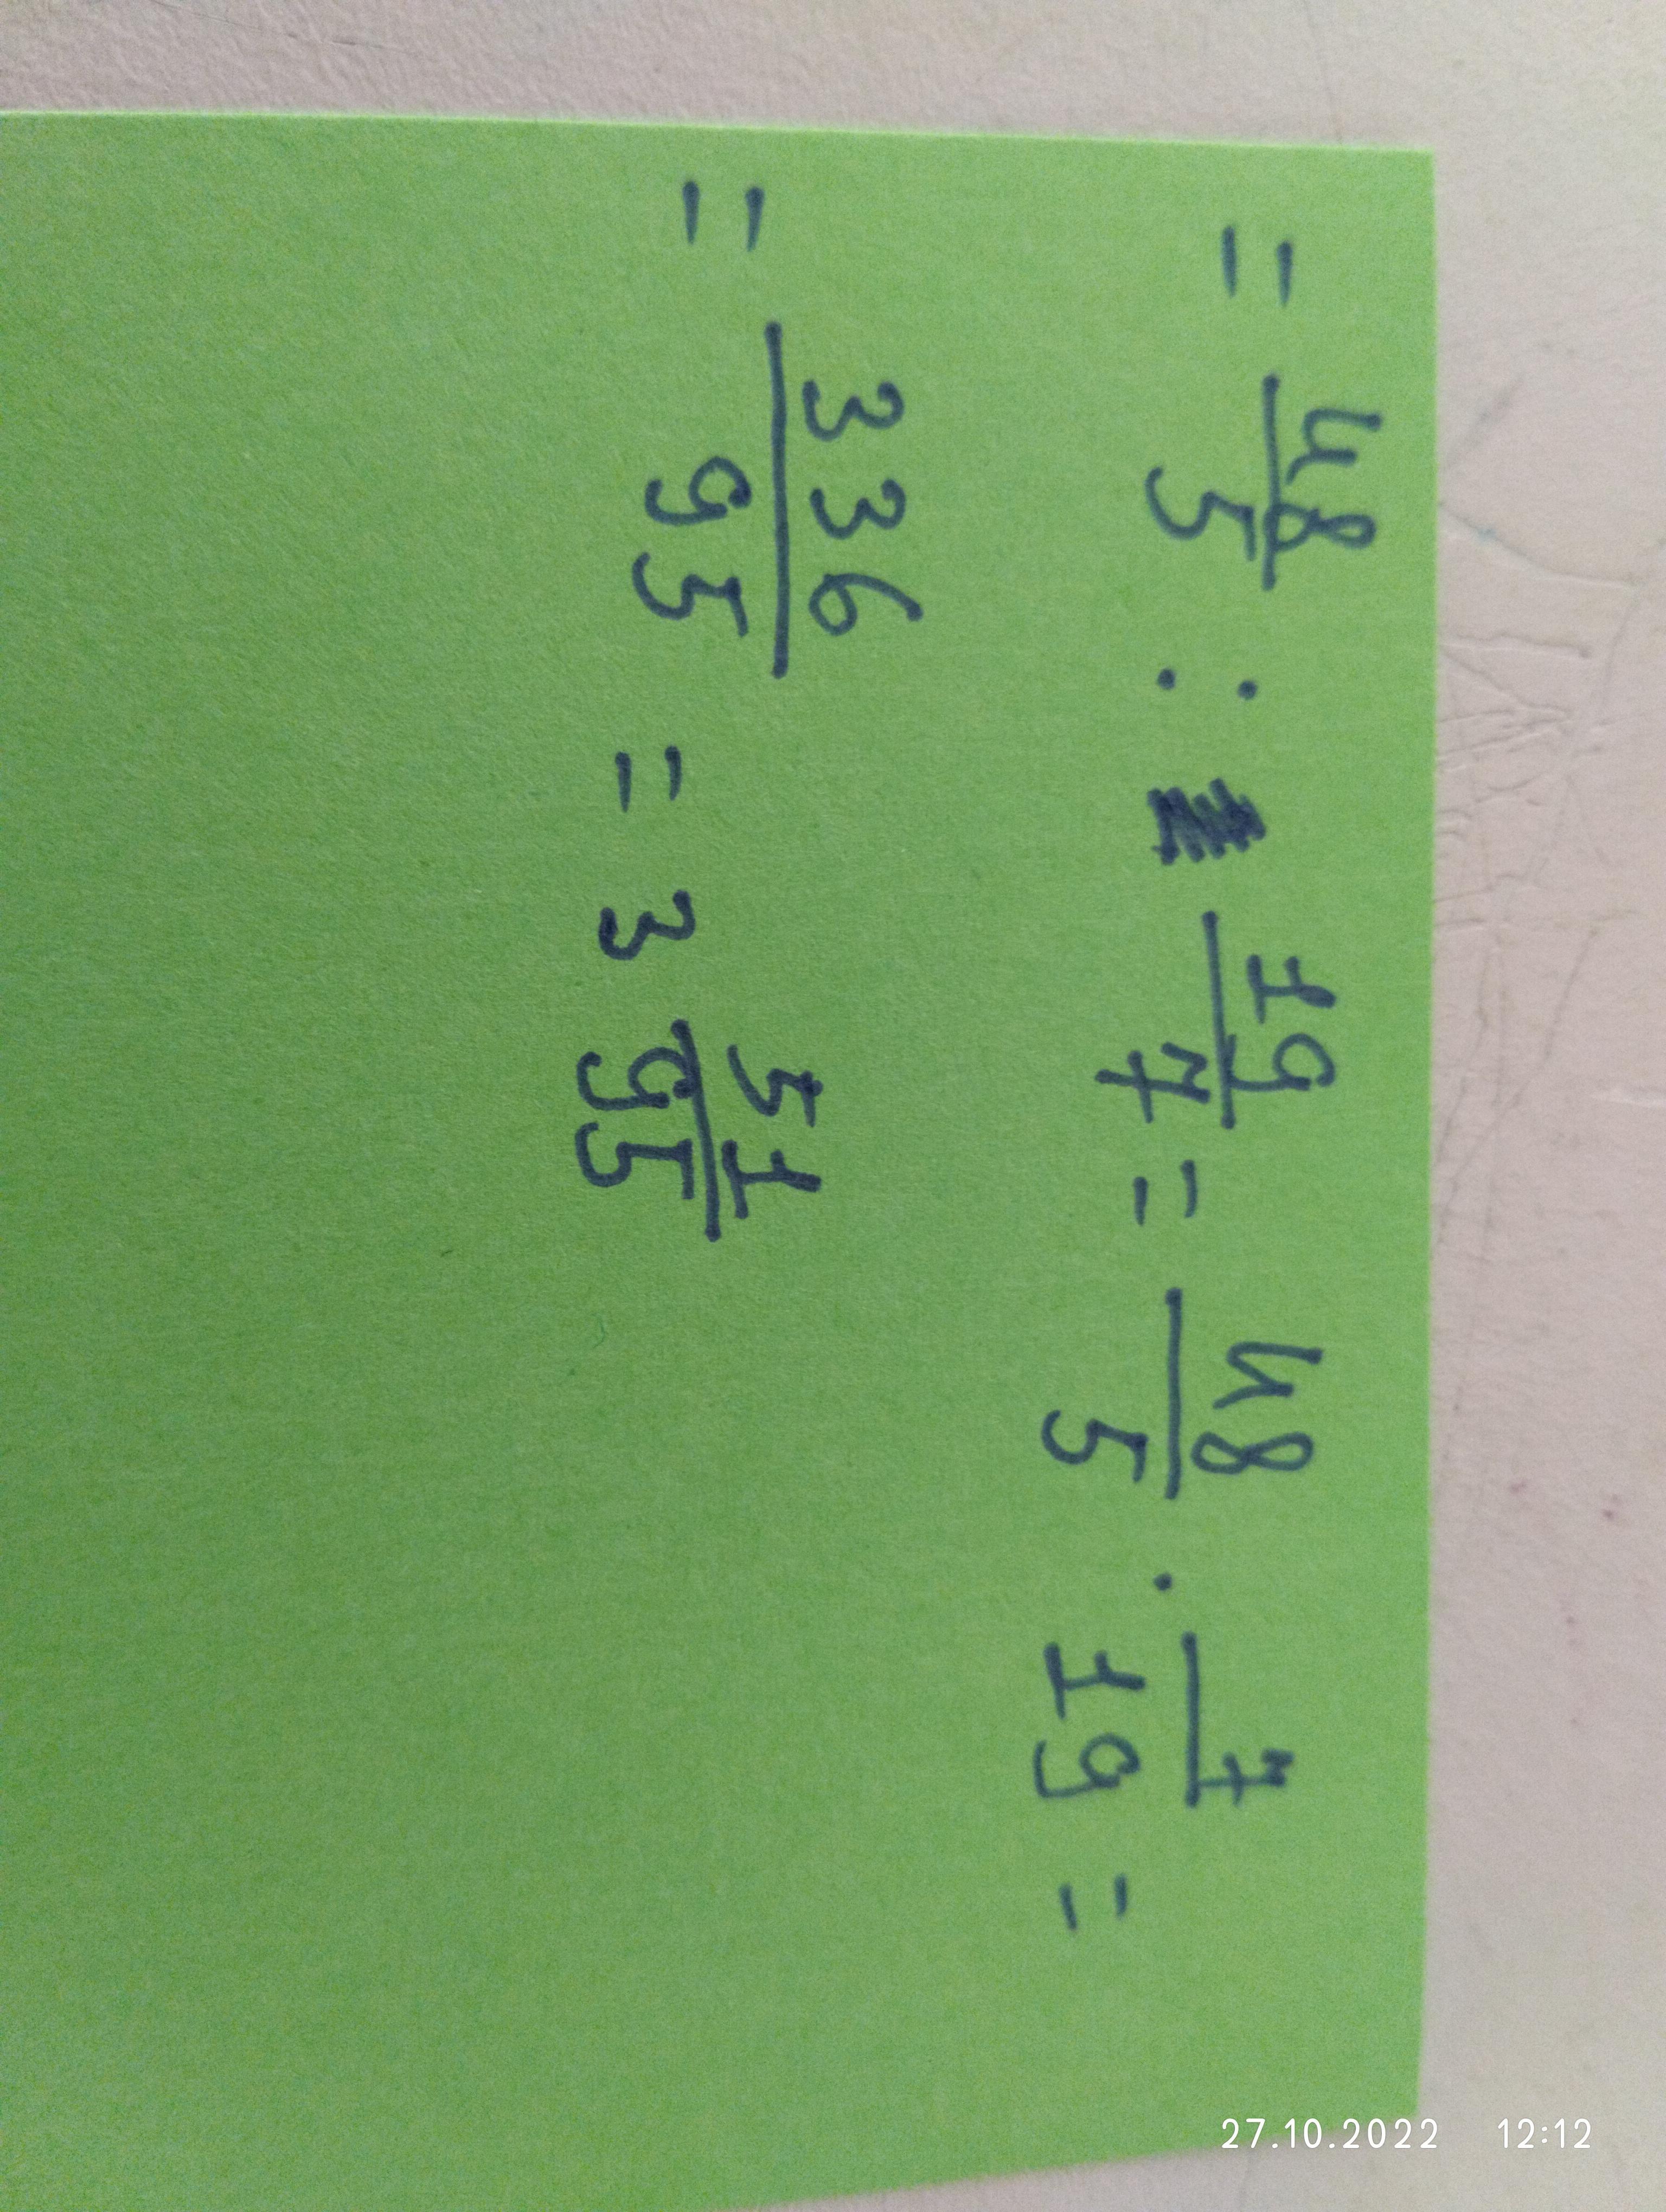 = 48/5 : 19/7 = 48/5 · 7/19 =
= 336/95 = 3 51/95
27.10.2022 12:12